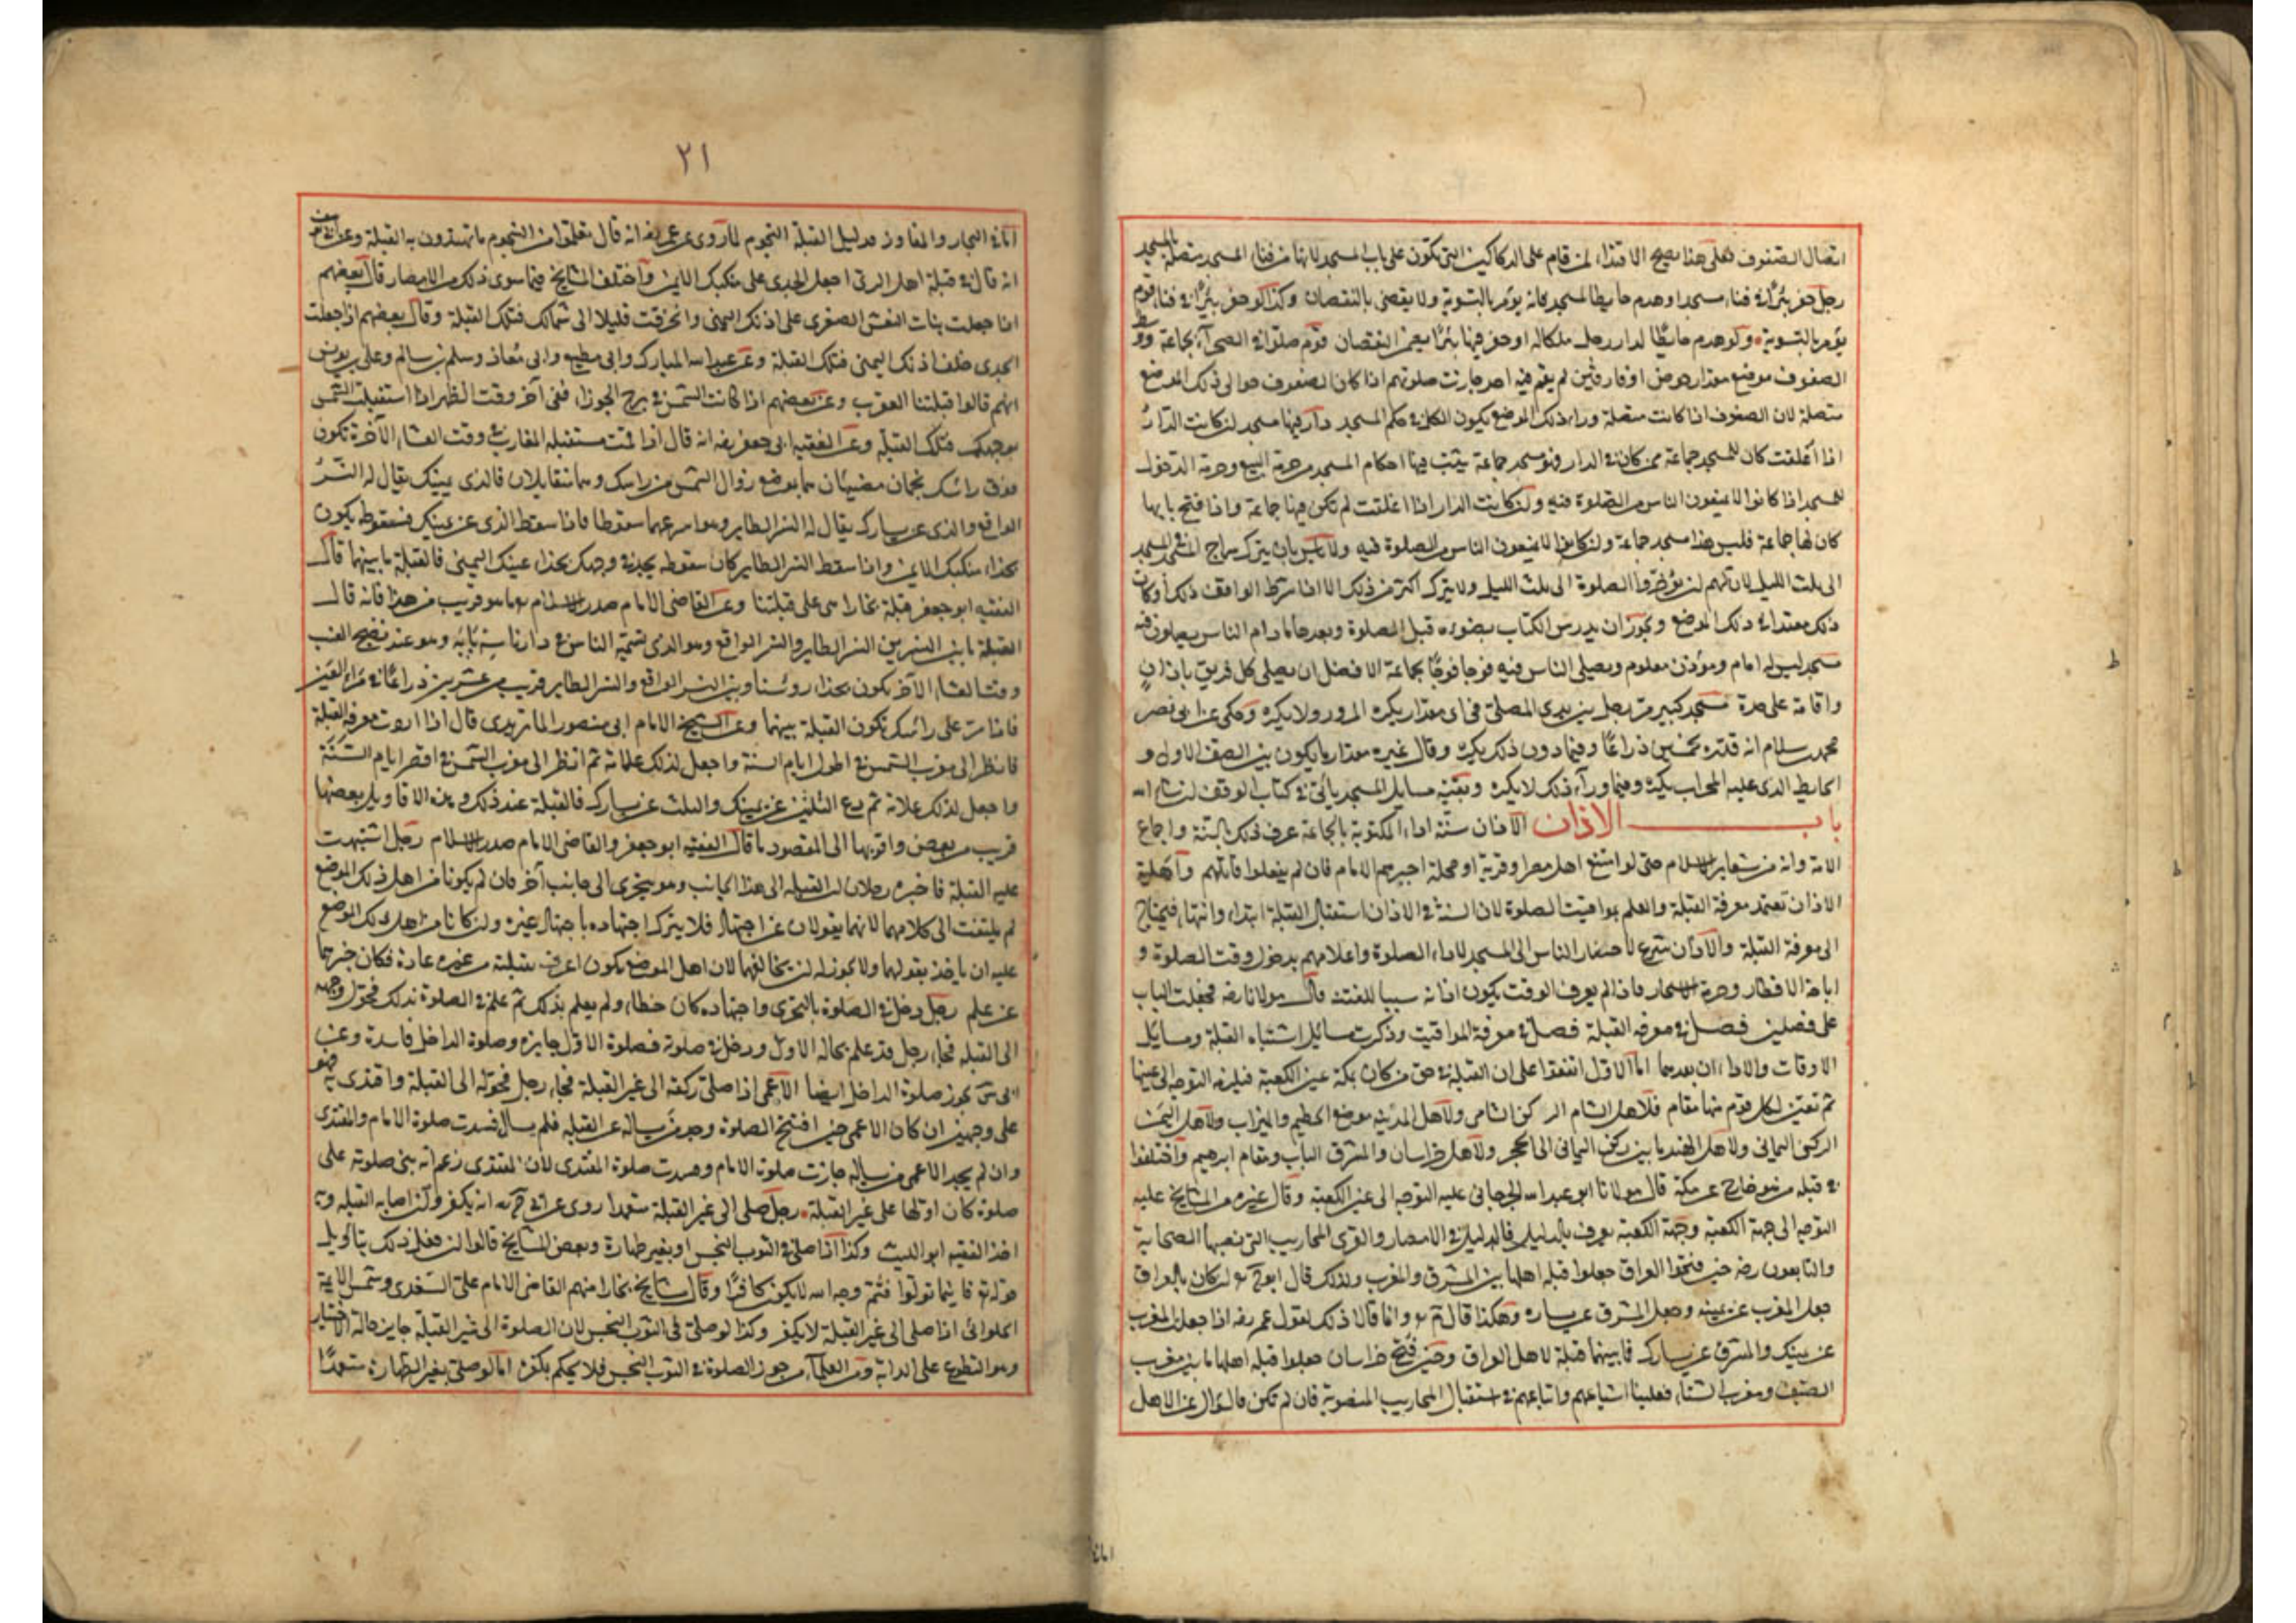 اتصال الصفوف فعلى هذا يصح الاقتداء لمن قام على الدكاكين التى تكون على باب المسجد لانها من فناء المسجد متصلة بالمسجد
رجل حفر بئرا فى فناء مسجد او هدم حايط المسجد فانه يؤمر بالتسوية ولا يقضى بالنقصان وكذا لو حفر بئرا فى فناء قوم
يؤمر بالتسوية ولو هدم حايطا لدار رجل ملكا له او حفر فيها بئرا يضمن النقصان قوم صلوا فى الصحراء بجماعة ووسط
الصفوف موضع مقدار حوض او فارقين لم يقم فيه احد جازت صلوتهم اذا كان الصفوف حوالى ذلك الموضع
متصلة لان الصفوف اذا كانت متصلة وراء ذلك الموضع يكون الكل فى حكم المسجد دار فيها مسجد ان كانت الدار
اذا اغلقت كان للمسجد جماعة ممن كان فى الدار فهو مسجد جماعة يثبت فيها احكام المسجد من حرمة البيع وحرمة الدخول
للمسجد اذا كانوا لا يمنعون الناس من الصلوة فيه وان كانت الدار اذا اغلقت لم تكن فيها جماعة واذا فتح بابها
كان لها جماعة فليس هذا مسجد جماعة وان كانوا لا يمنعون الناس من الصلوة فيه ولا باس بان يترك سراج المسجد فى المسجد
الى ثلث الليل لان لهم ان يؤخروا الصلوة الى ثلث الليل ولا يترك اكثر من ذلك الا اذا شرط الواقف ذلك او كان
ذلك معتادا فى ذلك الموضع ويجوز ان يدرس الكتاب بضوءه قبل الصلوة وبعدها ما دام الناس يصلون فيه
مسجد ليس له امام ومؤذن معلوم ويصلى الناس فيه فوجا فوجا بجماعة الافضل ان يصلى كل فريق باذان
واقامة على حدة مسجد كبير مر رجل بين يدى المصلى فى اى مقدار يكره المرور ولا يكره وحكى عن ابى نصر
محمد بن سلام انه قدره بخمسين ذراعا وفيما دون ذلك يكره وقال غيره مقدار ما يكون بين الصف الاول و
الحايط الذى عليه المحراب يكره وفيما وراء ذلك لا يكره وبقية مسايل المسجد ياتى فى كتاب الوقف ان شاء الله
باب الاذان الاذان سنة اداء المكتوبة بالجماعة عرف ذلك بالسنة واجماع
الامة وانه من شعاير الاسلام حتى لو امتنع اهل مصر او قرية او محلة اجبرهم الامام فان لم يفعلوا قاتلهم واهلية
الاذان تعتمد معرفة القبلة والعلم بمواقيت الصلوة لان السنة فى الاذان استقبال القبلة ابتداء وانتهاء فيحتاج
الى معرفة القبلة والاذان شرع لاحضار الناس الى المسجد لاداء الصلوة واعلامهم بدخول وقت الصلوة و
اباحة الافطار وحرمة الاسحار فاذا لم يعرف الوقت يكون اذانه سببا للفتنة قال مولانا رضه فجعلت الباب
على فصلين فصل فى معرفة القبلة فصل فى معرفة المواقيت وذكرت مسائل اشتباه القبلة ومسائل
الاوقات والاداء ان بعدها اما الاول اتفقوا على ان القبلة فى حق من كان بمكة عين الكعبة فيلزمه التوجه الى عينها
ثم تعين لكل قوم منها مقام فلاهل الشام الركن الشامى ولاهل المدينة موضع الحطيم والميزاب ولاهل اليمن
الركن اليمانى ولاهل الهند ما بين ركن اليمانى الى الحجر ولاهل خراسان والمشرق الباب ومقام ابرهيم واختلفوا
فى قبلة من هو خارج عن مكة قال مولانا ابو عبد الله الجرجانى عليه التوجه الى عين الكعبة وقال غيره من المشايخ عليه
التوجه الى جهة الكعبة وجهة الكعبة يعرف بالدليل فالدليل فى الامصار والقرى المحاريب التى نصبها الصحابة
والتابعون رضه حين فتحوا العراق جعلوا قبلة اهلها بين المشرق والمغرب ولذلك قال ابو ح ان كان بالعراق
جعل المغرب عن يمينه وجعل المشرق عن يساره وهكذا قال م وانما قالا ذلك لقول عمر رضه اذا جعلت المغرب
عن يمينك والمشرق عن يسارك فما بينهما قبلة لاهل العراق وحين فتح خراسان جعلوا قبلة اهلها ما بين مغرب
الصيف ومغرب الشتاء فعلينا اتباعهم واتباعهم فى استقبال المحاريب المنصوبة فان لم تكن فالسؤال عن الاهل
اما فى
٢١
اما فى البحار والمفاوز فدليل القبلة النجوم لما روى عن عمر رضه انه قال تعلموا من النجوم ما تهتدون به القبلة وعن
انه قال فى قبلة اهل الرى اجعل الجدى على منكبك الايمن واختلف المشايخ فيما سوى ذلك من الامصار قال بعضهم
اذا جعلت بنات النعش الصغرى على اذنك اليمنى وانحرفت قليلا الى شمالك فتلك القبلة وقال بعضهم اذا جعلت
الجدى خلف اذنك اليمنى فتلك القبلة وعن عبد الله المبارك وابى مطيع وابى معاذ وسلم بن سالم وعلى بن يونس
انهم قالوا قبلتنا العقرب وعن بعضهم اذا كانت الشمس فى برج الجوزاء ففى آخر وقت الظهر اذا استقبلت الشمس
بوجهك فتلك القبلة وعن الفقيه ابى جعفر رضه انه قال اذا قمت مستقبلة المغارب فى وقت العشاء الآخرة تكون
فوق رأسك نجمان مضيئان هما بموضع زوال الشمس من راسك وهما متقابلان فالذى يمينك يقال له النسر
الواقع والذى عن يسارك يقال له النسر الطاير وهو اسرعهما سقوطا فاذا سقط الذى عن يمينك فسقوطه يكون
بحذاء منكبك الايمن واذا سقط النسر الطاير كان سقوطه بحذاء وجهك بحذاء عينك اليمنى فالقبلة ما بينهما قال
الفقيه ابو جعفر قبلة بخارا هى على قبلتنا وعن القاضى الامام صدر الاسلام بما هو قريب من هذا فانه قال
القبلة ما بين النسرين النسر الطاير والنسر الواقع وهو الذى يسميه الناس فى دارنا سه پايه وهو عند نضج العنب
وقت العشاء الآخر يكون بحذاء رؤسنا وبين النسر الواقع والنسر الطاير قريب من عشرين ذراعا فى مراى العين
فاذا مرت على رأسك تكون القبلة بينهما وعن الشيخ الامام ابى منصور الماتريدى قال اذا اردت معرفة القبلة
فانظر الى مغرب الشمس فى اطول ايام السنة واجعل لذلك علامة ثم انظر الى مغرب الشمس فى اقصر ايام السنة
واجعل لذلك علامة ثم دع الثلثين عن يمينك والثلث عن يسارك فالقبلة عند ذلك وهذه الاقاويل بعضها
قريب من بعض واقربها الى المقصود ما قال الفقيه ابو جعفر والقاضى الامام صدر الاسلام رجل اشتبهت
عليه القبلة فاخبره رجلان ان القبلة الى هذا الجانب وهو يتحرى الى جانب آخر فان لم يكونا من اهل ذلك الموضع
لم يلتفت الى كلامهما لانهما يقولان عن اجتهاد فلا يترك اجتهاده باجتهاد غيره وان كانا من اهل ذلك الموضع
عليه ان ياخذ بقولهما ولا يجوز له ان يخالفهما لان اهل الموضع يكون اعرف بقبلته من غيره عادة فكان خبرهما
عن علم رجل دخل فى الصلوة بالتحرى واجتهاده كان خطاء ولم يعلم بذلك ثم علم فى الصلوة بذلك فحول وجهه
الى القبلة فجاء رجل قد علم بحاله الاول ودخل فى صلوته فصلوة الاول جايزة وصلوة الداخل فاسدة وعن
ابى س يجوز صلوة الداخل ايضا الاعمى اذا صلى ركعة الى غير القبلة فجاء رجل فحوله الى القبلة واقتدى به فهو
على وجهين ان كان الاعمى حين افتتح الصلوة وجد من يساله عن القبلة فلم يسال فسدت صلوة الامام والمقتدى
وان لم يجد الاعمى من يساله جازت صلوة الامام وفسدت صلوة المقتدى لان المقتدى زعم انه بنى صلوته على
صلوة كان اولها على غير القبلة رجل صلى الى غير القبلة متعمدا روى عن ابى ح رحمه انه يكفر وان اصابه القبلة وبه
اخذ الفقيه ابو الليث وكذا اذا صلى فى الثوب النجس او بغير طهارة وبعض المشايخ قالوا ان فعل ذلك بتاويل
قوله تع فاينما تولوا فثم وجه الله لا يكون كافرا وقال مشايخ بخارا منهم القاضى الامام على السغدى وشمس الايمة
الحلوائى اذا صلى الى غير القبلة لا يكفر وكذا لو صلى فى الثوب النجس لان الصلوة الى غير القبلة جايز حالة الاختيار
وهو التطوع على الدابة ومن العلماء من جوز الصلوة فى الثوب النجس فلا يحكم بكفره اما لو صلى بغير الطهارة متعمدا